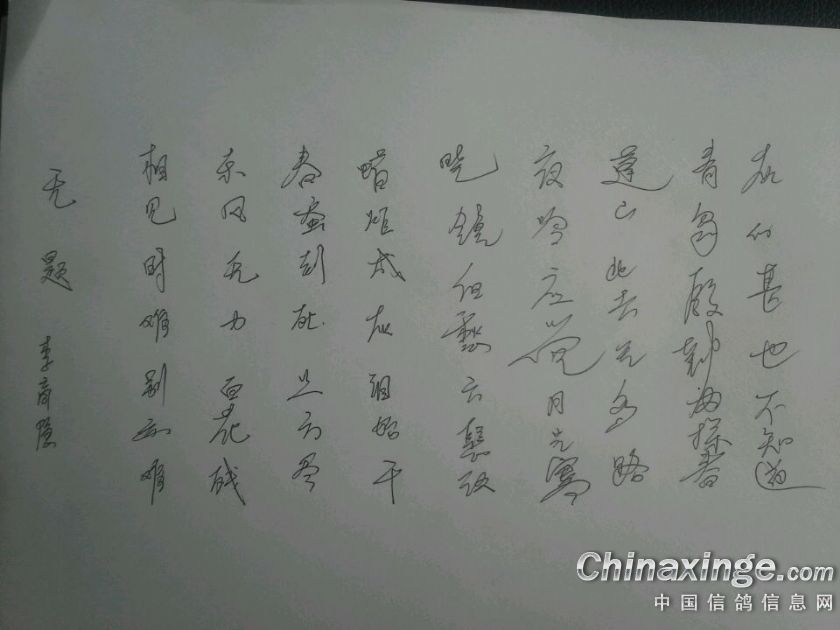 无题 李商隐
相见时难别亦难
东风无力百花残
春蚕到死丝方尽
蜡炬成灰泪始干
晓镜但愁云鬓改
夜吟应觉月光寒
蓬山此去无多路
青鸟殷勤为探看
甚也不知道
Chinaxinge.com
中国信鸽信息网